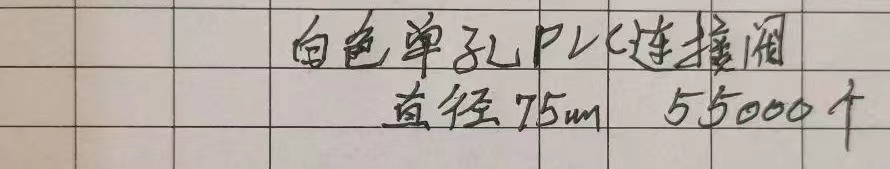 白色单孔PVC连接阀
直径75mm 55000个